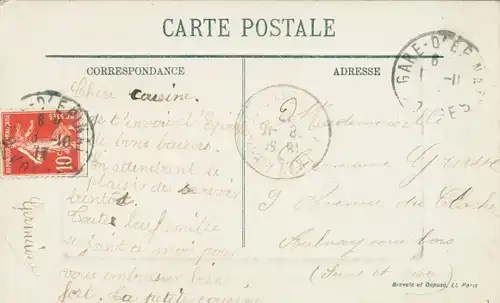 CARTE POSTALE
CORRESPONDANCE
ADRESSE
Chère cousine
Je t'envoie d'Epinal
de bons baisers.
En attendant le
plaisir de revoir
bientôt.
Toute la famille
se joint à moi pour
vous embrasser bien
fort. La petite cousine
Germaine
Mademoiselle
Germaine
9 Avenue du Clocher
Aulnay sous bois
(Seine et Oise)
GARE-D'EPINAL
8
11
RÉPUBLIQUE FRANÇAISE
10
POSTES
Breveté et Déposé, LL Paris